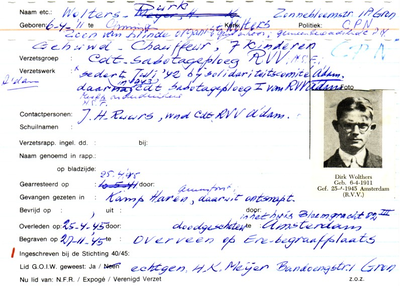 Naam etc.: Wolters - Dirk Zinnebloemstr. Gron
Geboren 6-4- te Wolters Politiek C.P.N.
Zoon van blinde
Gehuwd Chauffeur, 7 kinderen C.P.N.
Verzetsgroep Cdt. Sabotageploeg RVV
Verzetswerk sedert Juli '42 bij solidariteitscomité A'dam.
A'dam daarna Cdt Sabotageploeg I van RVV A'dam
Foto
Contactpersonen: J.H. Ruurs, wnd Cdt. RVV A'dam.
Schuilnaam :
Verzetsrapp. ingel. dd. : bij:
Naam genoemd in rapp:
op bladzijde:
25-4-45
Gearresteerd op door:
Gevangen gezeten in: Kamp Haren, daaruit ontsnapt.
Bevrijd op : uit in het huis Bloemgracht 82 III
Overleden op 25-4-45 door doodgeschoten te Amsterdam
Begraven op 27-11-45 te Overveen op Ere-begraafplaats
Ingeschreven bij de Stichting 40/45:
Lid G.O.I.W. geweest: Ja / Neen echtgen. H.K. Meijer Bandoengstr. Gron
Nu lid van: N.F.R. / Expogé / Verenigd Verzet z.o.z.
Dirk Wolthers
Geb. 6-4-1911
Gef. 25-4-1945 Amsterdam
(R.V.V.)